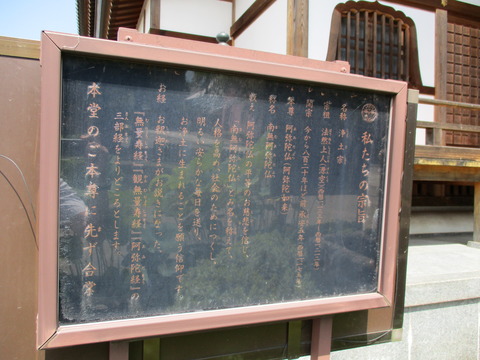 私たちの宗旨
名称 浄土宗
宗祖 法然上人
開宗 今から八百
本尊 阿弥陀仏（阿弥陀如来）
称名 南無阿弥陀仏
教え 阿弥陀仏の平等のお慈悲を信じ、
南無阿弥陀仏とみ名を称えて、
人格を高め、社会のためにつくし、
明るい安らかな毎日を送り、
お浄土に生まれることを願う信仰です
お経 お釈迦さまがお説きになった、
『無量寿経』『観無量寿経』『阿弥陀経』の
三部経をよりどころとします
本堂のご本尊に先ず合掌